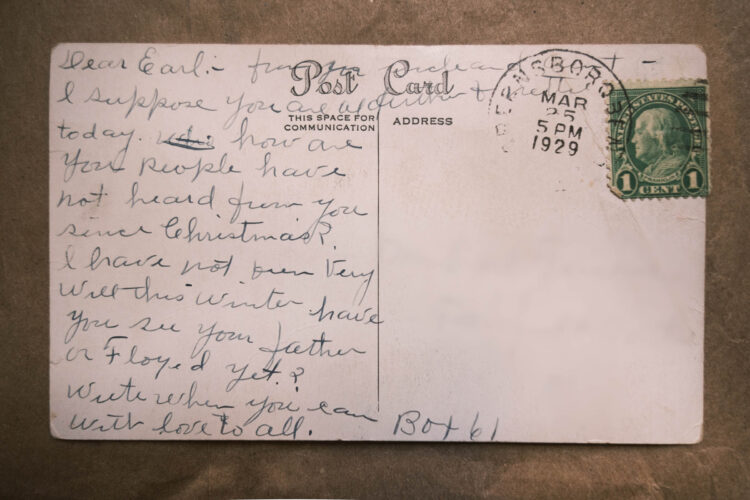 Dear Earl:- from your uncle and aunt -
Post Card
I suppose you are
THIS SPACE FOR
COMMUNICATION
ADDRESS
today. how are
you people have
not heard from you
since Christmas?
I have not been very
well this winter have
you see your father
or Floyed yet?
write when you can
with love to all.
Box 61
GREENSBORO
MAR
25
5 PM
1929
UNITED STATES POSTAGE
FRANKLIN
1 CENT 1